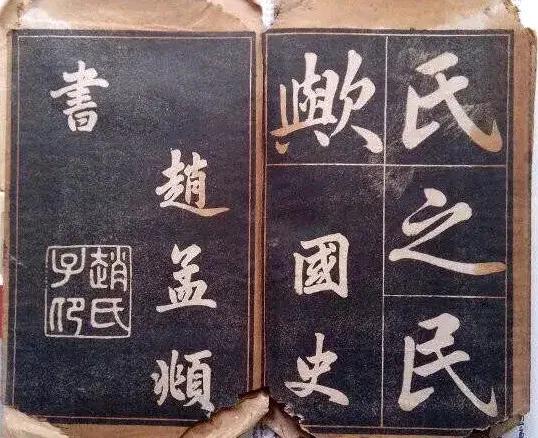 氏之民
歟
國史
趙孟頫
書
趙氏子印